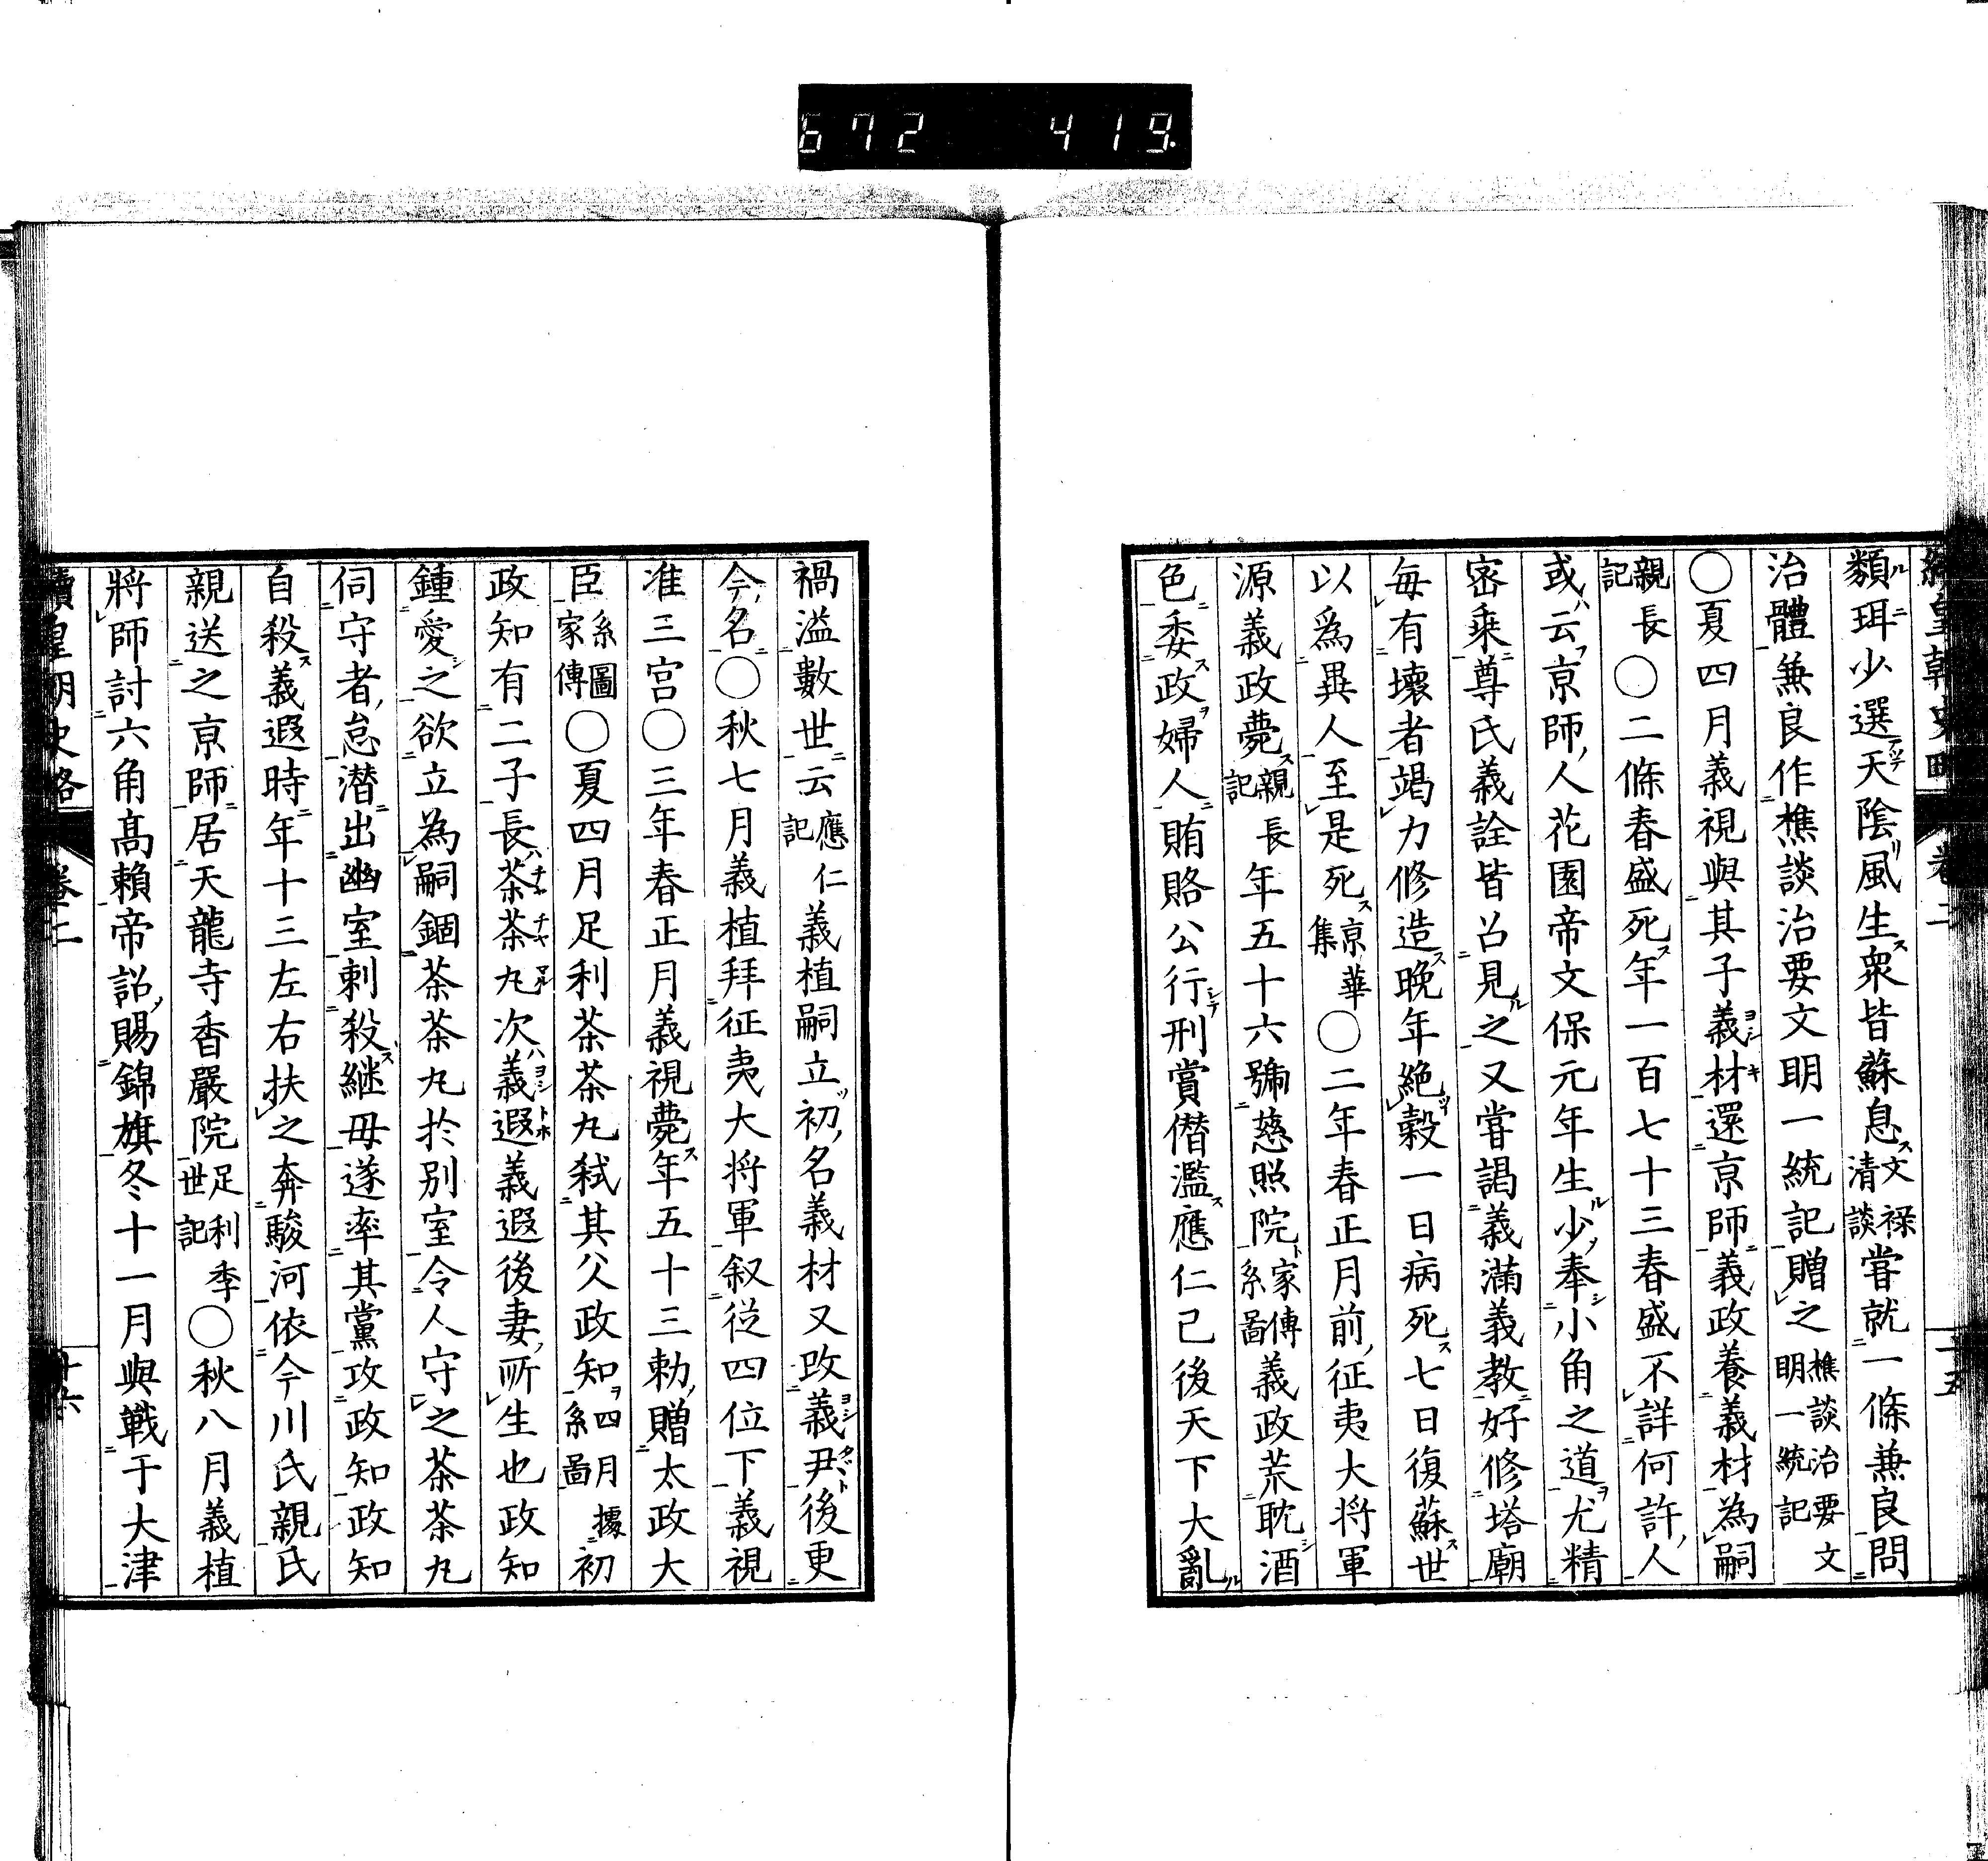 672 419
類珥少選天陰風生衆皆蘇息文禄清談嘗就一條兼良問
治體兼良作樵談治要文明一統記贈之樵談治要文明一統記
○夏四月義視與其子義材還京師義政養義材為嗣
親長記○二條春盛死年一百七十三春盛不詳何許人
或云京師人花園帝文保元年生少奉小角之道尤精
密乗尊氏義詮皆召見之又嘗謁義滿義教好修塔廟
毎有壊者竭力修造晩年絶穀一日病死七日復蘇世
以爲異人至是死京華集○二年春正月前征夷大将軍
源義政薨親長記年五十六號慈照院家傳系圖義政荒耽酒
色委政婦人賄賂公行刑賞僭濫應仁已後天下大亂
禍溢數世云應仁記義植嗣立初名義材又改義尹後更
今名○秋七月義植拜征夷大将軍叙従四位下義視
准三宮○三年春正月義視薨年五十三勅贈太政大
臣系圖家傳○夏四月足利茶茶丸弑其父政知四月據系圖初
政知有二子長茶茶丸次義遐義遐後妻所生也政知
鍾愛之欲立為嗣錮茶茶丸於別室令人守之茶茶丸
伺守者怠潜出幽室刺殺継母遂率其黨攻政知政知
自殺義遐時年十三左右扶之奔駿河依今川氏親氏
親送之京師居天龍寺香嚴院足利季世記○秋八月義植
將師討六角高頼帝詔賜錦旗冬十一月與戦于大津
續皇朝史略 卷二 十六